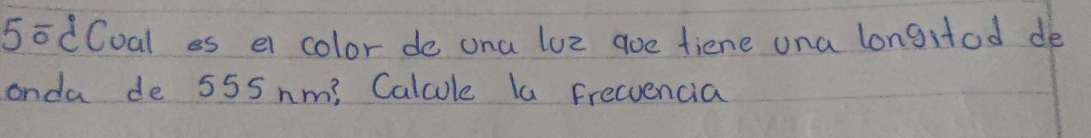 5º ¿Coal es el color de una luz que tiene una longitod de
onda de 555 nm? Calcule la Frecuencia